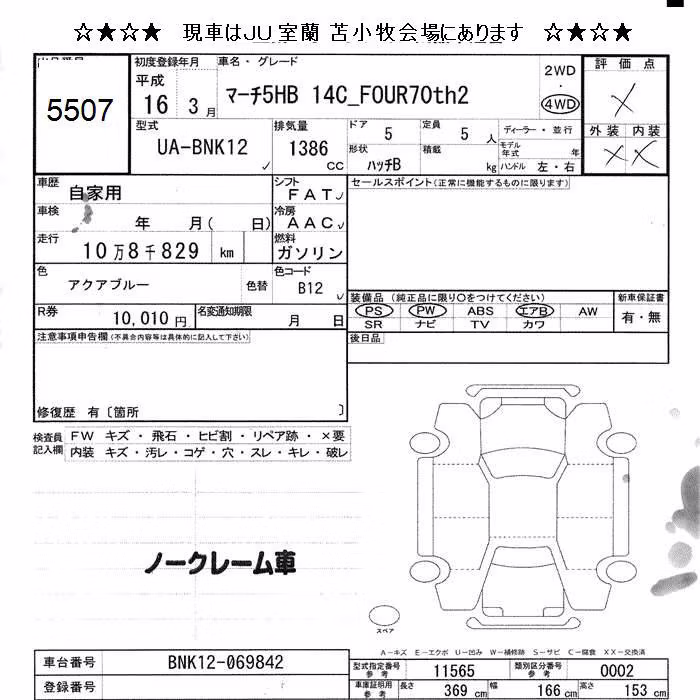 ☆★☆★ 現車はJU室蘭 苫小牧会場にあります ☆★☆★
初度登録年月 車名・グレード 評価点
平成 2WD
5507 16 3月 マーチ5HB 14C_FOUR70th2 4WD ×
型式 排気量 ドア 5 定員 5 人 ディーラー・並行 外装 内装
UA-BNK12 1386 CC 形状 ハッチB 積載 kg モデル年式 年 × ×
ハンドル 左・右
車歴 自家用 シフト FAT セールスポイント(正常に機能するものに限ります)
車検 年 月( 日) 冷房 AAC
走行 10万8千829 km 燃料 ガソリン
色 アクアブルー 色替 色コード B12
装備品 (純正品に限り○をつけてください) 新車保証書
R券 10,010円 名変通知期限 月 日 PS PW ABS エアB AW 有・無
SR ナビ TV カワ
注意事項申告欄(不具合内容等は具体的に記入して下さい) 後日品
修復歴 有〔箇所 〕
検査員記入欄 FW キズ・飛石・ヒビ割・リペア跡・×要
内装 キズ・汚レ・コゲ・穴・スレ・キレ・破レ
ノークレーム車
スペア
A-キズ E-エクボ U-凹み W-補修跡 S-サビ C-腐食 XX-交換済
車台番号 BNK12-069842 型式指定番号参考 11565 類別区分番号参考 0002
登録番号 車庫証明用参考 長さ 369 cm 幅 166 cm 高さ 153 cm